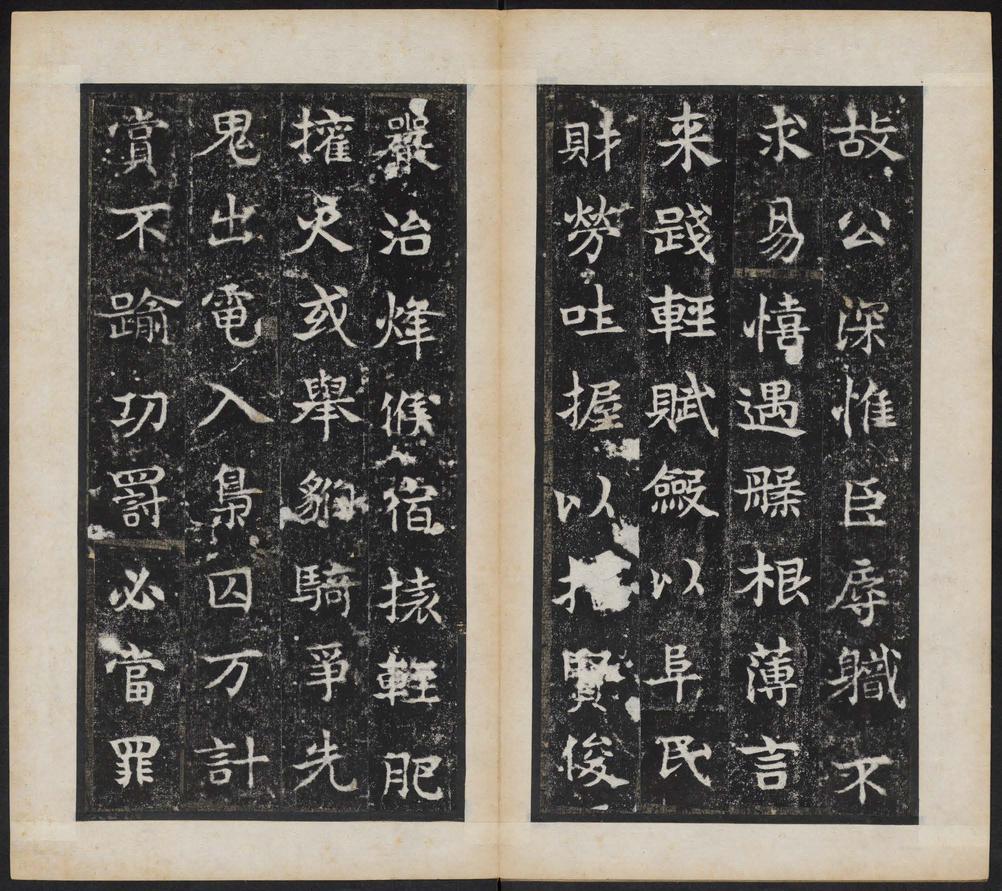 故公深惟臣辱職不
求易憘遇槃根薄言
来踐輕賦斂以阜民
財勞吐握以賢俊
嚴治烽候宿援輕肥
爟火或舉貔騎爭先
鬼出電入梟囚万計
賞不踰功罰必當罪